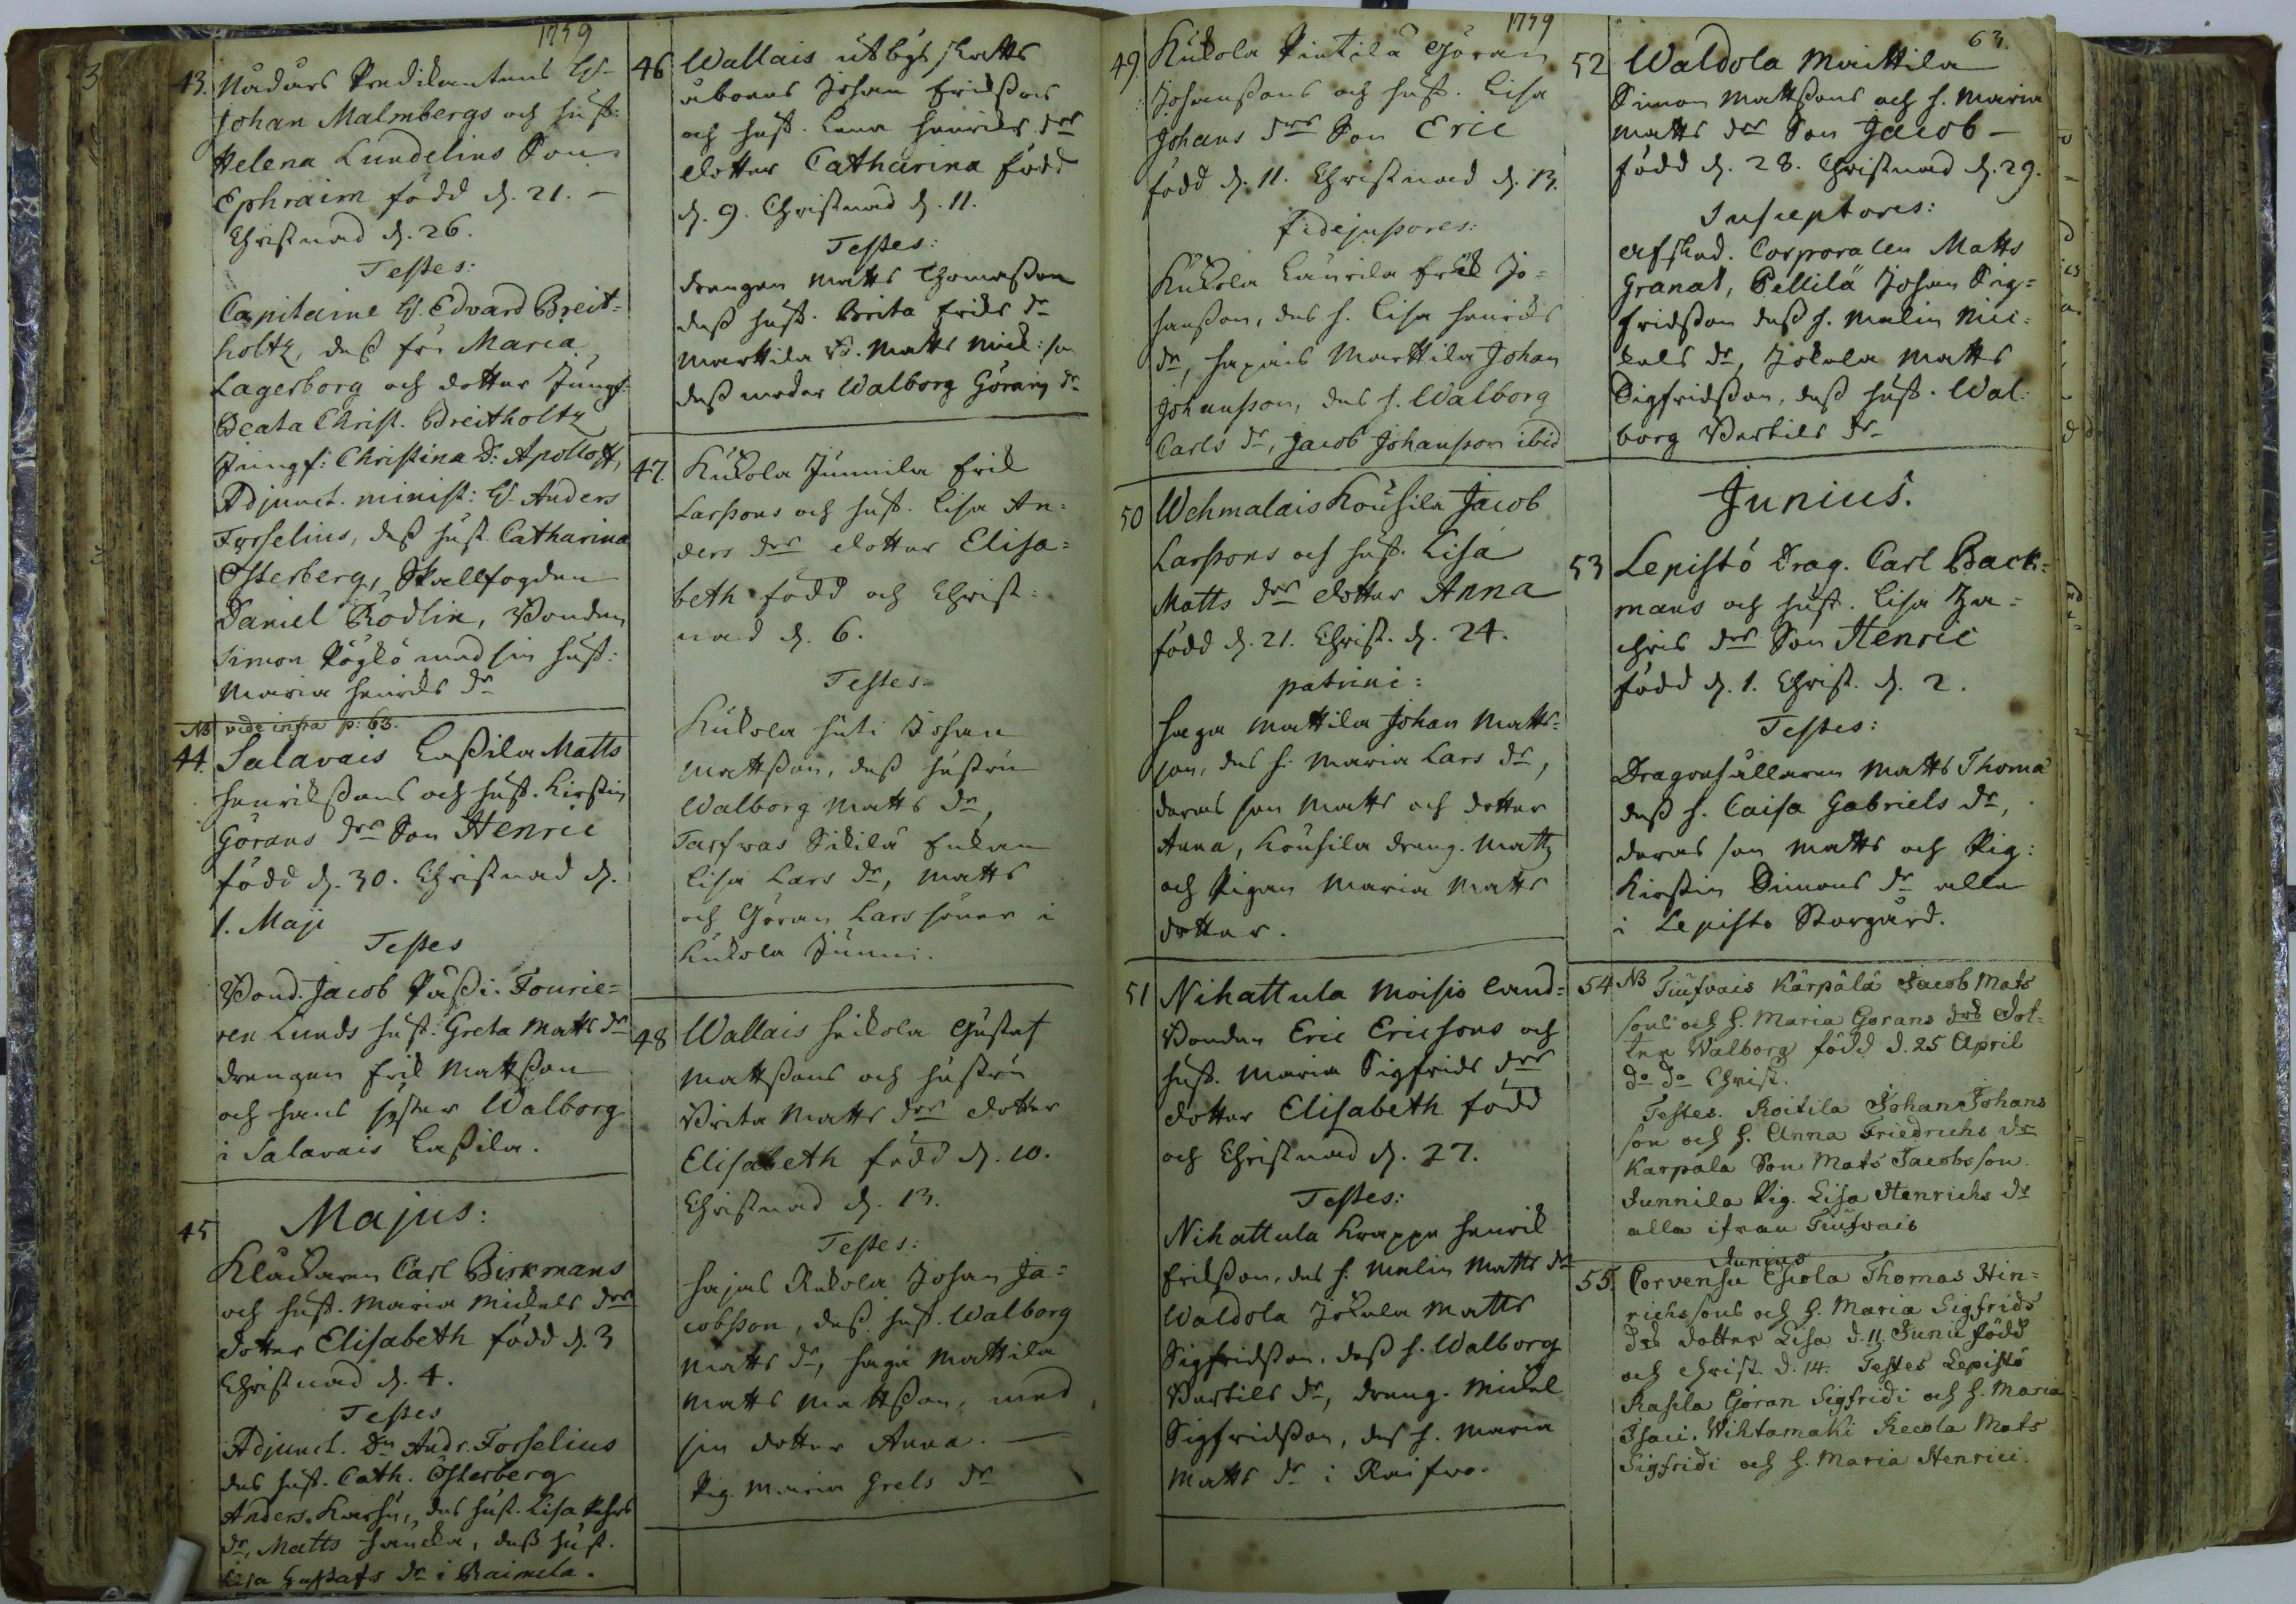 1759
43. Nådårs Predikantens H.
Johan Malmbergs och hust:
Helena Lundelius Son
Ephraim född d. 21. –
Christnad d. 26.
Testes:
Capitaine H. Edvard Breit=
holtz, dess fru Maria
Lagerborg och dotter Jungf.
Beata Christ. Breitholtz
Jungf: Christina D: Apolloff,
Adjunct. minist: H. Anders
Forselius, dess hust. Catharina
Österberg, Skallfogden
Daniel Rödlin, Bonden
Simon med sin hust:
Maria Henriks dr
NB vide infra p: 63.
44. Salavais Lassila Matts
Henrikssons och hust. Kirstin
Görans drs Son Henric
född d. 30. Christnad d.
1. Maji
Testes
Bond. Jacob Passi. Fourie=
ren Lunds hust: Greta Matts dr
drengen Erik Mattsson
och hans syster Walborg
i Salavais Lassila.
Majus:
45 Klåckaren Carl Birkmans
och hust. Maria Mickels drs
dotter Elisabeth född d. 3
Christnad d. 4.
Testes
Adjunct. Dn Andr. Forselius
des hust. Cath. Österberg
Anders Karhu, des hust. Lisa
dr, Matts Hancka, dess hust.
Lisa Gustafs dr i Raimela.
46 Wallais utbygs skatts
åboens Johan Erikssons
och hust. Lena Henriks drs
dotter Catharina född
d. 9. Christnad d. 11.
Testes:
drengen Matts Thomasson
dess hust. Brita Eriks dr
Marttila B. Matts Mick: son
dess moder Walborg Görans dr
47. Kukola Junnila Erik
Larssons och hust. Lisa An=
ders drs dotter Elisa=
beth född och Christ=
nad d. 6.
Testes
Kukola Huti Johan
Mattsson, dess hustru
Walborg Matts dr,
Tarfvas Sikilä Enkan
Lisa Lars dr, Matts
och Göran Lars söner i
Kukola Junni.
48 Wallais Heikola Gustaf
Mattssons och hustru
Brita Matts drs dotter
Elisabeth född d. 10.
Christnad d. 13.
Testes:
Hajas Rukola Johan Ja=
cobsson, dess hust. Walborg
Matts dr, Haga Mattila
Matts Mattsson, med
sin dotter Anna. –
Pig. Maria Grels dr
1759
49. Kukola Pintilä Göran
Johanssons och hust. Lisa
Johans drs Son Eric
född d. 11. Christnad d. 13.
fidejussores:
Kukola Laurila Erik Jo=
hansson, des h. Lisa Henriks
dr, Hapais Marttila Johan
Johansson, des h. Walborg
Carls dr, Jacob Johansson ibid
50 Wehmalais Kouhila Jacob
Larssons och hust. Lisa
Matts drs dotter Anna
född d. 21. Christ. d. 24.
patrini:
Haga Mattila Johan Matts=
son, des h. Maria Lars dr,
deras son Matts och dotter
Anna, Kouhila dreng. Matts
och Pigan Maria Matts
dotter.
51 Nihattula Moisio Land=
Bonden Eric Ericsons och
hust. Maria Sigfrids drs
dotter Elisabeth född
och Christnad d. 27.
Testes:
Nihattula Krappe Henrik
Eriksson, des h. Malin Matts dr
Waldola Jokela Matts
Sigfridsson, dess h. Walborg
Bertils dr, dreng. Mickel
Sigfridsson, des h. Maria
Matts dr i Raifwo.
63.
52 Waldola Maittila
Simon Mattssons och h. Maria
Matts drs Son Jacob –
född d. 28. Christnad d. 29.
Susceptores:
Afsked. Corporalen Matts
Granat, Pellilä Johan Sig=
fridsson dess h. Malin Mic=
kels dr, Jokela Matts
Sigfridsson, dess hust. Wal:
borg Bertils dr
Junius.
53 Lepistö Drag. Carl Back=
mans och hust. Lisa Za=
chris drs Son Henric
född d. 1. Christ. d. 2.
Testes:
Dragonhållaren Matts Thomä
dess h. Caisa Gabriels dr,
deras son Matts och Pig:
Kirstin Simons dr alla
i Lepistö Storgård.
54 NB Tiufvais Kärpälä Jacob Mats
sons och h. Maria Görans drs Dot=
ter Walborg född d. 25 April
do do Christ.
Testes. Roitila Johan Johans
son och h. Anna Friedrichs dr
Karpala Son Mats Jacobsson.
Junnila Pig. Lisa Henrichs dr
alla ifrån Tiufvais
Junius
55. Torvensu Eskola Thomas Hin=
richssons och h. Maria Sigfrids
drs dotter Lisa d. 11 Junii född
och christ. d. 14. Testes Lepistö
Rasila Göran Sigfridi och h. Maria
Isaci. Wihtamäki Recola Mats
Sigfridi och h. Maria Henrici.